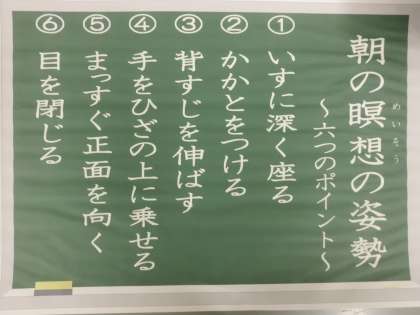 朝の瞑想の姿勢
めいそう
～六つのポイント～
①いすに深く座る
②かかとをつける
③背すじを伸ばす
④手をひざの上に乗せる
⑤まっすぐ正面を向く
⑥目を閉じる